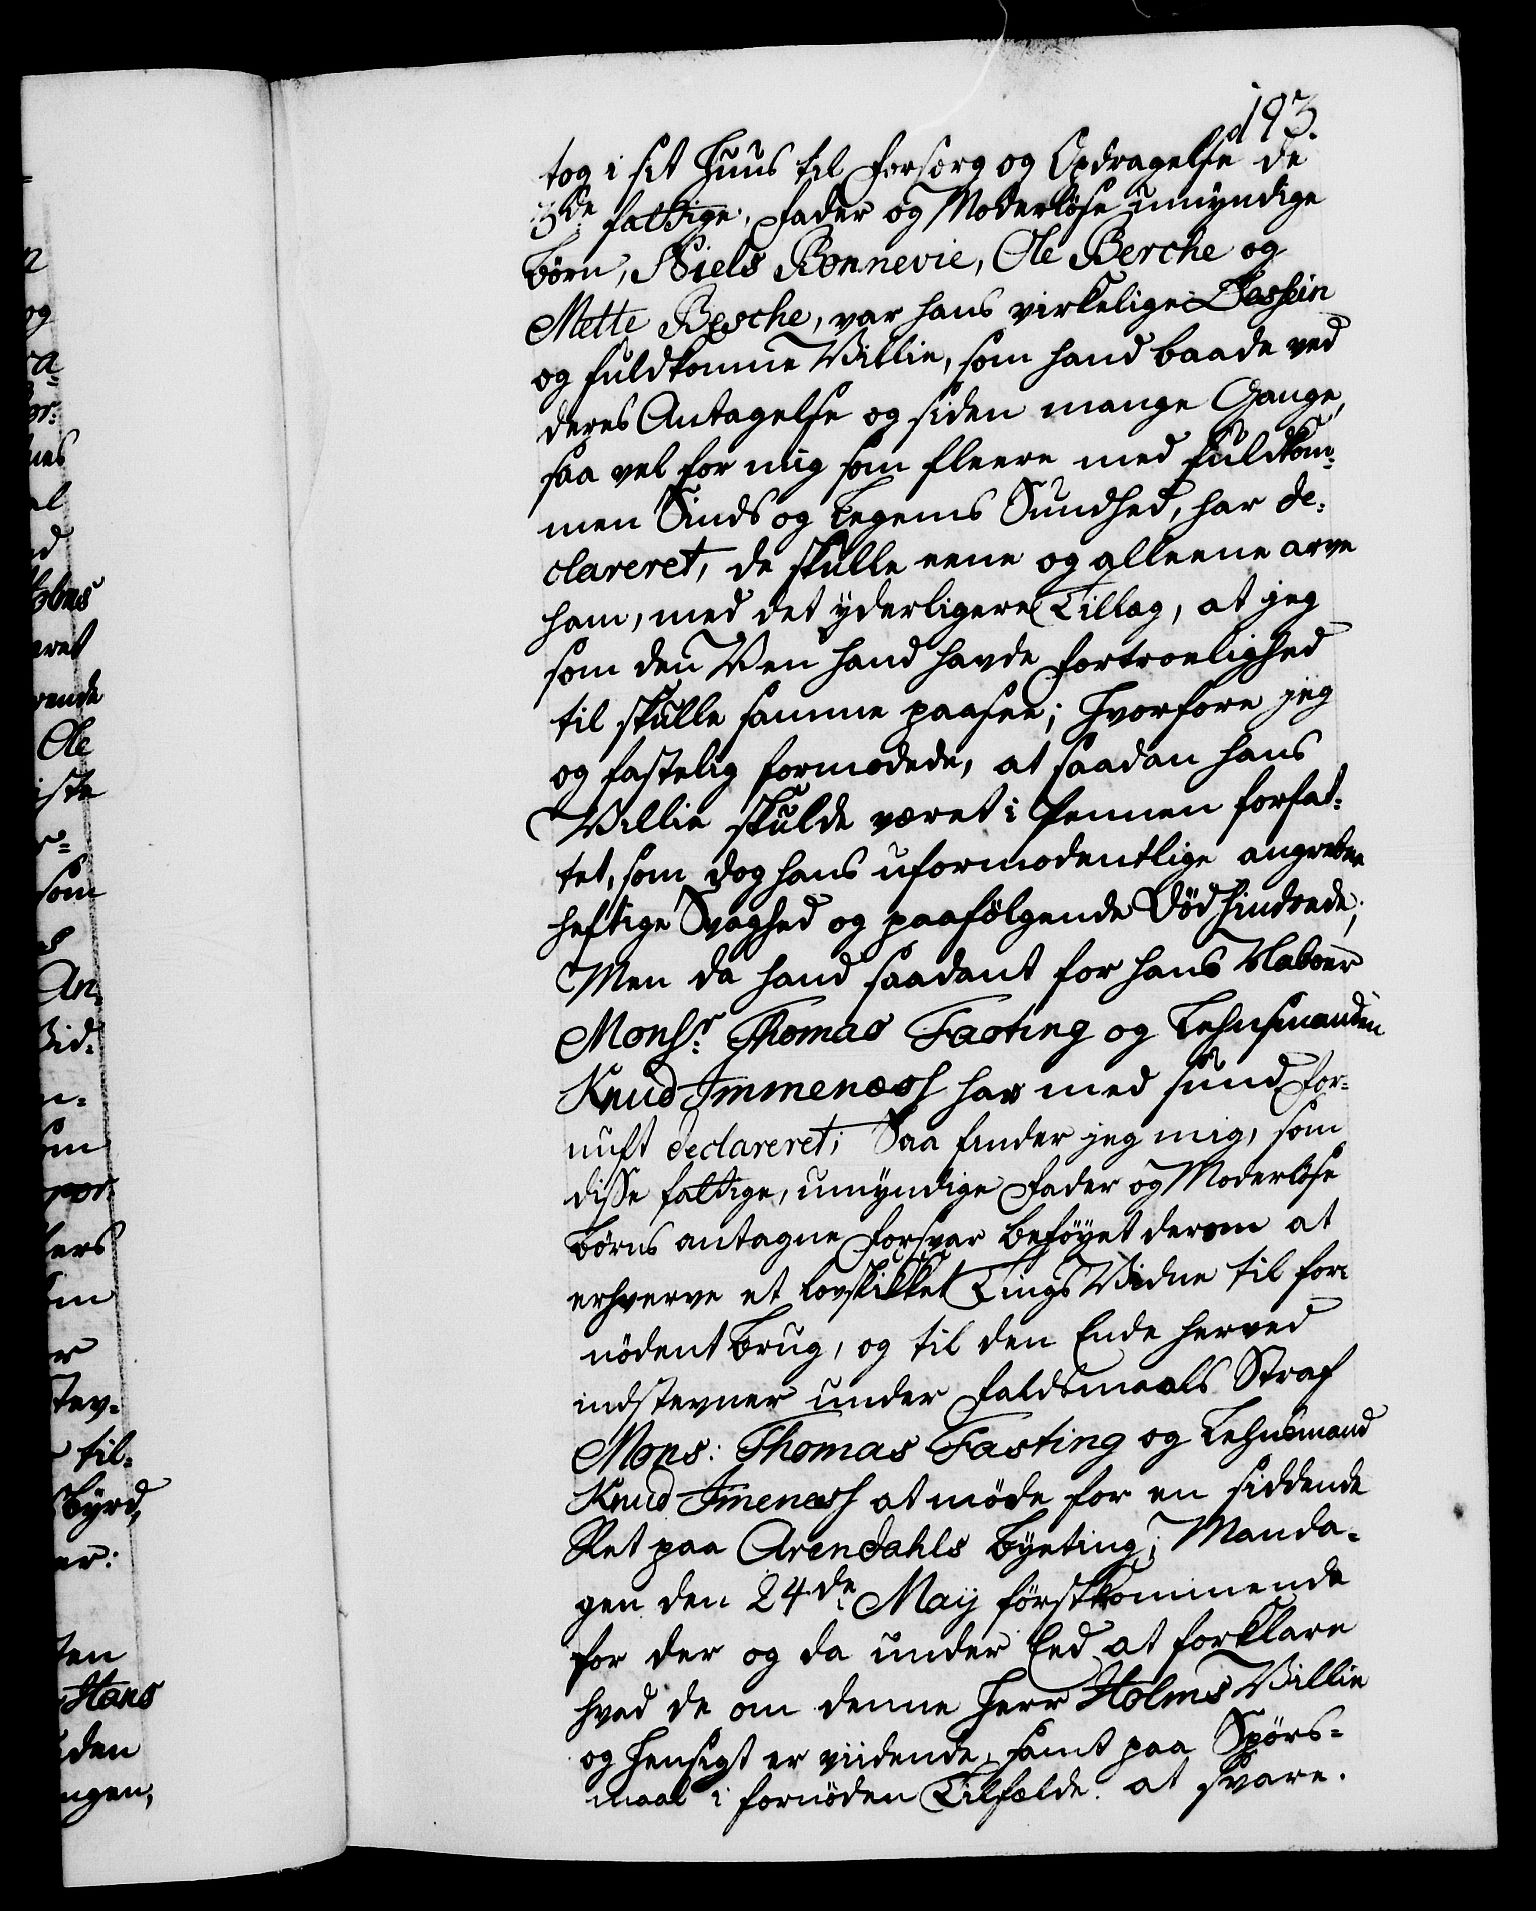 193.
tog i sit Huus til Forsorg og Opdragelse de
3de fattige, Fader og Moderløse umyndige
Børn, Niels Bonnevie, Ole Berche og
Mette Berche, var hans virkelige Dessein
og fuldkomne Villie, som hand baade ved
deres Antagelse og siden mange Gange,
saa vel for mig som fleere med fuldkom-
men Sinds og Legems Sundhed, har de-
clareret, de skulle eene og alleene arve
ham, med det yderligere Tillæg, at jeg
som den Ven hand havde Fortroelighed
til skulle samme paasee; Hvorfore jeg
og fastelig formodede, at saadan hans
Villie skulde været i Pennen forfat-
tet, som dog hans uformodentlige angrebne
heftige Svaghed og paafølgende Død hindrede;
Men da hand saadant for hans Naboer
Monsr. Thomas Fasting og Lehnsmanden
Knud Immenæss har med sund For-
nuft declareret; Saa finder jeg mig, som
disse fattige, umyndige Fader og Moderløse
Børns antagne Forsvar beføyet derom at
erhverve et lovskikket Tings Vidne til for-
nødent Brug, og til den Ende herved
indstevner under Faldsmaals Straf
Mons: Thomas Fasting og Lehnsmand
Knud Imenæss at møde for en siddende
Ret paa Arendahls Byeting, Manda-
gen den 24de May førstkommende
for der og da under Eed at forklare
hvad de om denne Herr Holms Villie
og Hensigt er viidende, samt paa Spørs-
maal i fornøden Tilfælde at svare.